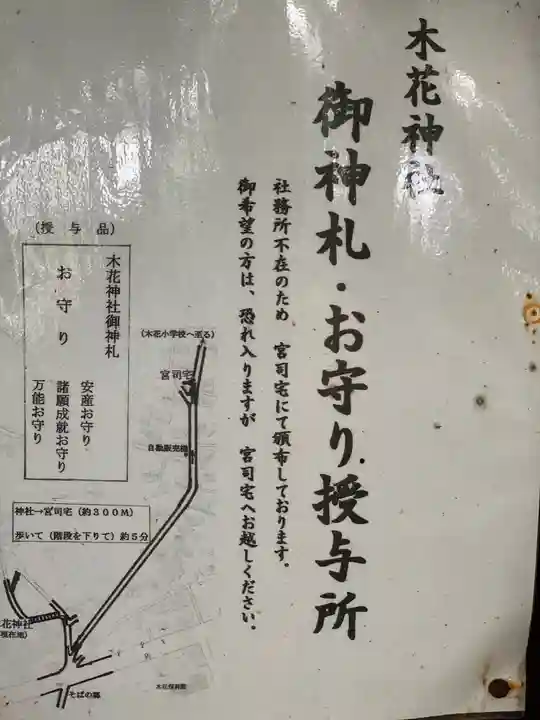 木花神社
御神札・お守り授与所
社務所不在のため 宮司宅にて頒布しております。
御希望の方は、恐れ入りますが 宮司宅へお越しください。
(授与品)
木花神社御神札
お守り
安産お守り
諸願成就お守り
万能お守り
(木花小学校へ至る)
宮司宅
自動販売機
神社→宮司宅(約300M)
歩いて(階段を下りて)約5分
花神社
現在地)
そばの郷
木花保育園